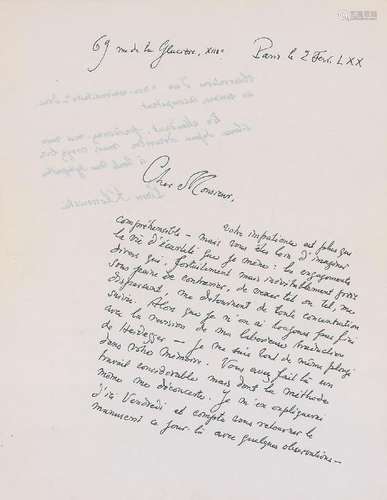 69 rue de la Glacière, XIIIe Paris le 2 Févr. LXX
Cher Monsieur,
votre impatience est plus que
compréhensible – mais vous êtes loin d'imaginer
la vie d'écartelé que je mène : les engagements
divers qui, fortuitement mais inévitablement pris
sous peine de contrarier, de vexer tel ou tel, me
dispersent, me détournent de toute concentration
suivie. Alors que je n'en ai toujours pas fini
avec la révision de ma laborieuse traduction
de Heidegger – je me suis lors de même plongé
dans votre Mémoire. Vous avez fait là un
travail considérable mais dont la méthode
même me déconcerte. Je m'en expliquerai
d'ici Vendredi et compte vous retourner le
manuscrit ce jour-là avec quelques observations –